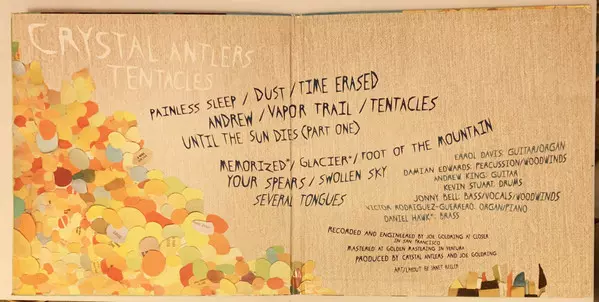 CRYSTAL ANTLERS
TENTACLES
PAINLESS SLEEP / DUST / TIME ERASED
ANDREW / VAPOR TRAIL / TENTACLES
UNTIL THE SUN DIES (PART ONE)
MEMORIZED* / GLACIER* / FOOT OF THE MOUNTAIN
YOUR SPEARS / SWOLLEN SKY
SEVERAL TONGUES
ERROL DAVIS: GUITAR/ORGAN
DAMIAN EDWARDS: PERCUSSION/WOODWINDS
ANDREW KING: GUITAR
KEVIN STUART: DRUMS
JONNY BELL: BASS/VOCALS/WOODWINDS
VICTOR RODRIGUEZ-GUERRERO: ORGAN/PIANO
DANIEL HAWK*: BRASS
RECORDED AND ENGINEERED BY JOE GOLDRING AT CLOSER
IN SAN FRANCISCO
MASTERED AT GOLDEN MASTERING IN VENTURA
PRODUCED BY CRYSTAL ANTLERS AND JOE GOLDRING
ART/LAYOUT BY JANET KELLER